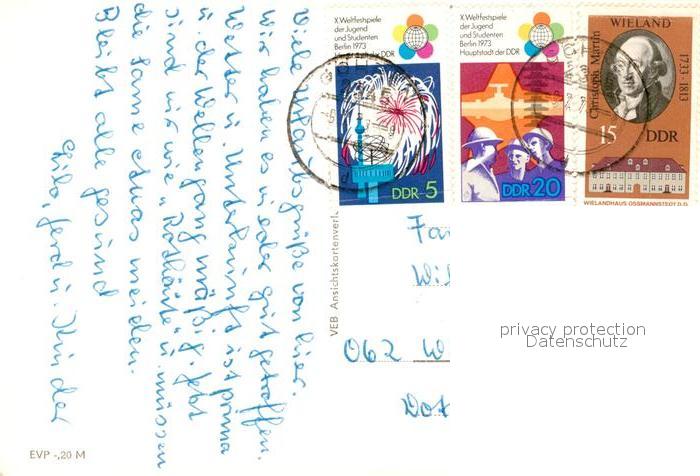 X. Weltfestspiele
der Jugend
und Studenten
Berlin 1973
Hauptstadt der DDR
DDR 5
X. Weltfestspiele
der Jugend
und Studenten
Berlin 1973
Hauptstadt der DDR
DDR 20
WIELAND
Christoph Martin
1733 - 1813
15 DDR
WIELANDHAUS OSSMANNSTEDT
Viele Urlaubsgrüße von hier.
Wir haben es wieder gut getroffen.
Wetter u. Unterkunft ist prima
u. der Wellengang mäßig. Jetzt
sind wir wie "Rothäute" u. müssen
die Sonne etwas meiden.
Bleibt alle gesund
Gerd u. Kinder
VEB Ansichtskartenverl
Fa
Wil
062 W
Dot
EVP -,20 M
privacy protection
Datenschutz